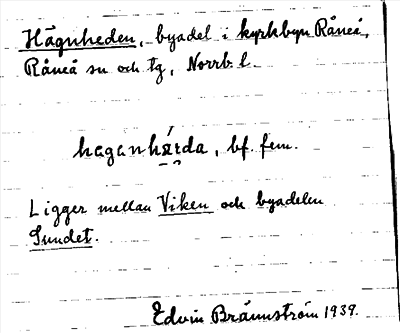 Hägnheden, byadel i kyrkbyn Råneå,
Råneå sn och tg, Norrb. l.
, bf. fem.
Ligger mellan Viken och byadelen
Sundet.
Edvin Brännström 1939.